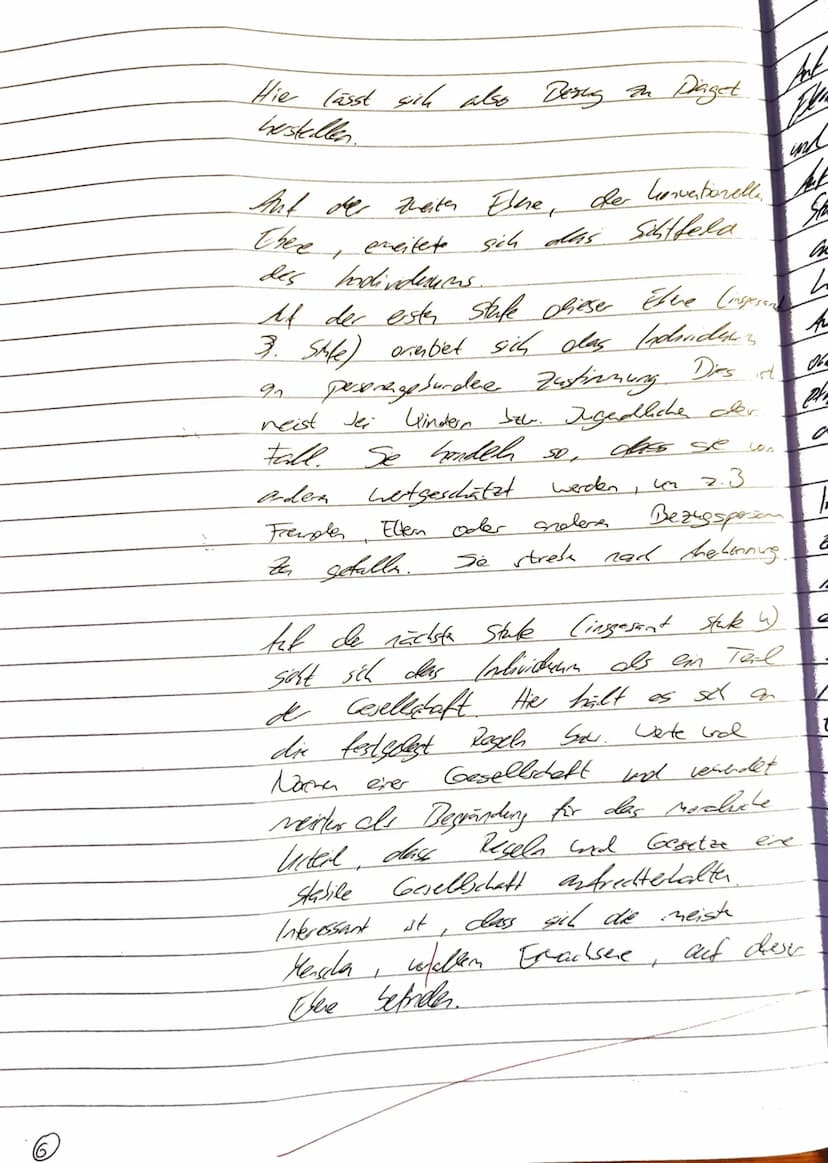 Hier lässt sich also Bezug zu Piaget
herstellen.
Auf der zweiten Ebene, der konventionellen
Ebene, erweitete sich das Sichtfeld
des Individuums.
Auf der ersten Stufe dieser Ebene (insgesamt
3. Stufe) orientiet sich das Individuum
an personengebundene Zustimmung. Dies ist
meist bei Kindern bzw. Jugendlichen der
Fall. Sie handeln so, dass sie von
andern wertgeschätzt werden, um z.B
Freunden, Eltern oder anderen Bezugspersonen
zu gefallen. Sie streben nach Anerkennung.
Auf der nächsten Stufe (insgesamt Stufe 4)
sieht sich das Individuum als ein Teil
der Gesellschaft. Hier hält es sich an
die festgelegt Regeln bzw. Werte und
Normen einer Gesellschaft und verwendet
meistens als Begründung für das moralische
Urteil, dass Regeln und Gesetze eine
stabile Gesellschaft aufrechterhalten.
Interessant ist, dass sich die meisten
Menschen, vorallem Erwachsene, auf dieser
Ebene befinden.
6
Auf
und